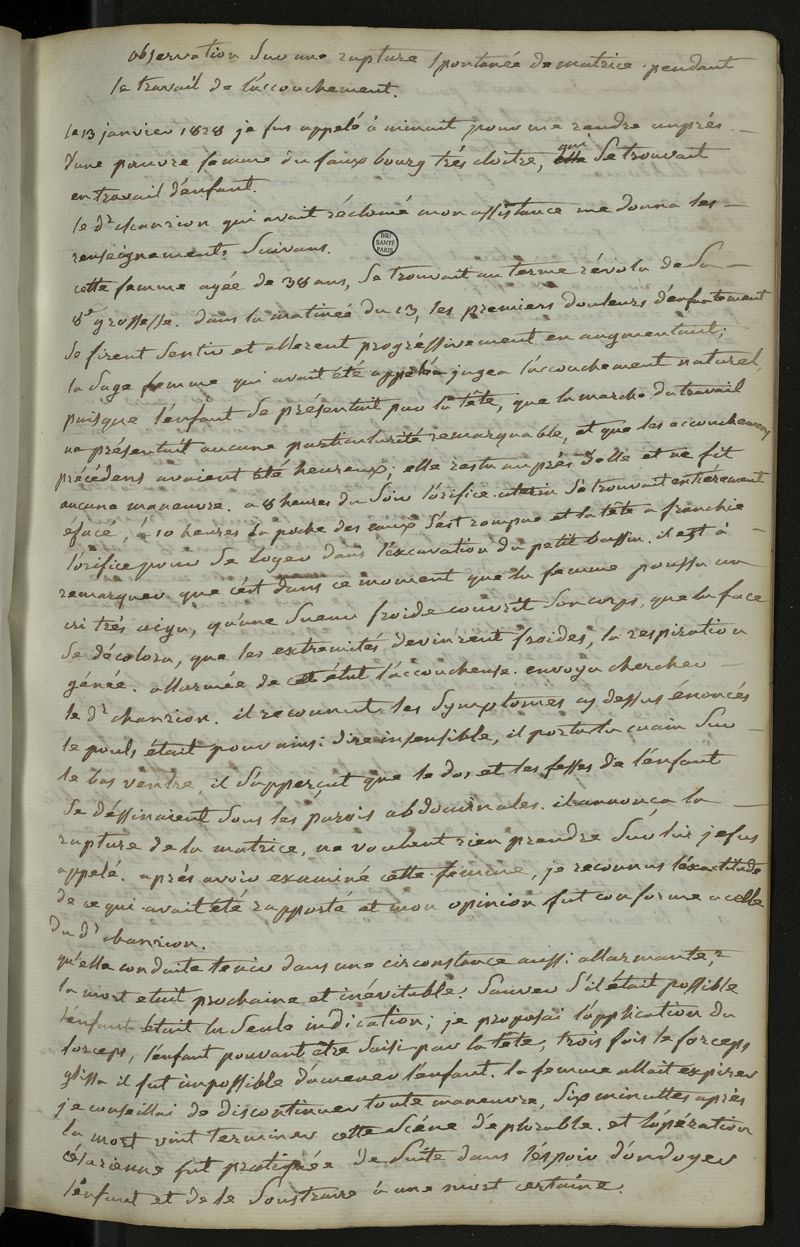 observation Sur une rupture Spontanée de matrice pendant
le travail de l'accouchement.
le 13 janvier 1828 je fus appelé à minuit pour me rendre auprés
d'une pauvre femme du faux bourg trés cloitre, qui Se trouvait
en travail d'enfant.
le dr chanrion qui avait réclamé mon assistance me donna les
renseignements Suivans.
BIU
SANTÉ
PARIS
cette femme agée de 38 ans, Se trouvait au terme révolu de Sa
8e grossesse. dans la matinée du 13, les premiers douleurs d'enfantement
Se firent Sentir et allerent progréssivement en augmentant;
la Sage femme qui avait été appeléa jugea l'accouchement naturel,
puisque l'enfant Se présentait par la tête, que la marche du travail
ne présentait aucune particularité remarquable, et que les accouchemens
précédens avaient été heureux; elle resta auprés d'elle et ne fit
aucune manœuvre. a 8 heures du Soir l'orifice uterin Se trouvait entiérement
éfacé, à 10 heures la poche des eaux s'est rompue et la tête a franchie
l'orifice pour Se loger dans l'éxcavation du petit bassin. il est à
remarquer que c'est dans ce moment que la femme poussa un
cri trés aigu, qu'une Sueur froide couvrit Son corps, que la face
Se décolora, que les extremités devinrent froides, la respiration
génée. allarmée de cet état l'accoucheuse envoya chercher
le dr chanrion. il reconnut les Symptomes cy dessus énoncés
le pouls était pour ainsi dire insensible, il porta la main Sur
le bas ventre, il S'apperçut que le dos et les fesses de l'enfant
Se déssinaient Sous les parois abdominales. il annonça la
rupture de la matrice, ne voulant rien prendre Sur lui je fus
appelé. aprés avoir examiné cette femme, je reconnus l'éxactitude
de ce qui avait été rapporté et mon opinion fut conforme a celle
du dr chanrion.
qu'elle conduite tenir dans une circonstance aussi allarmante?
la mort etait prochaine et inévitable. Sauver S'il était possible
l'enfant était la Seule indication; je proposai l'application du
forceps, l'enfant pouvant être Saisi par la tête, trois fois le forceps
glissa il fut impossible d'amener l'enfant. la femme allait expirer
je conseillai de discontinuer toute manœuvre, Six minuttes aprés
la mort vint terminer cette Scéne déplorable. et l'opération
césarienne fut pratiquée de Suite dans l'espoir d'ondoyer
l'enfant et de le Soustraire à une mort certaine.